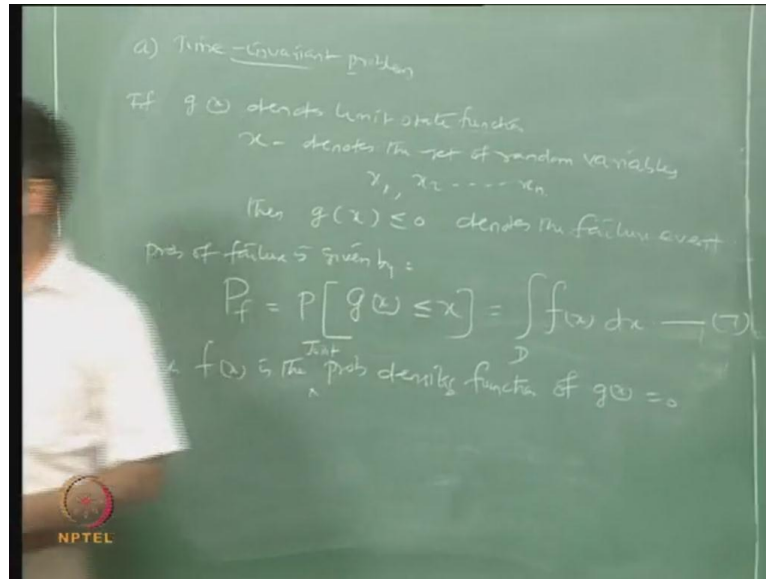 a) Time-invariant problem
If g(x) denotes limit state function
x - denotes the set of random variables
x1, x2 ----- xn
then g(x) ≤ 0 denotes the failure event
Prob of failure is given by:
Pf = P[g(x) ≤ x] = ∫D f(x) dx — (7)
f(x) is the Joint prob density function of g(x) = 0
NPTEL